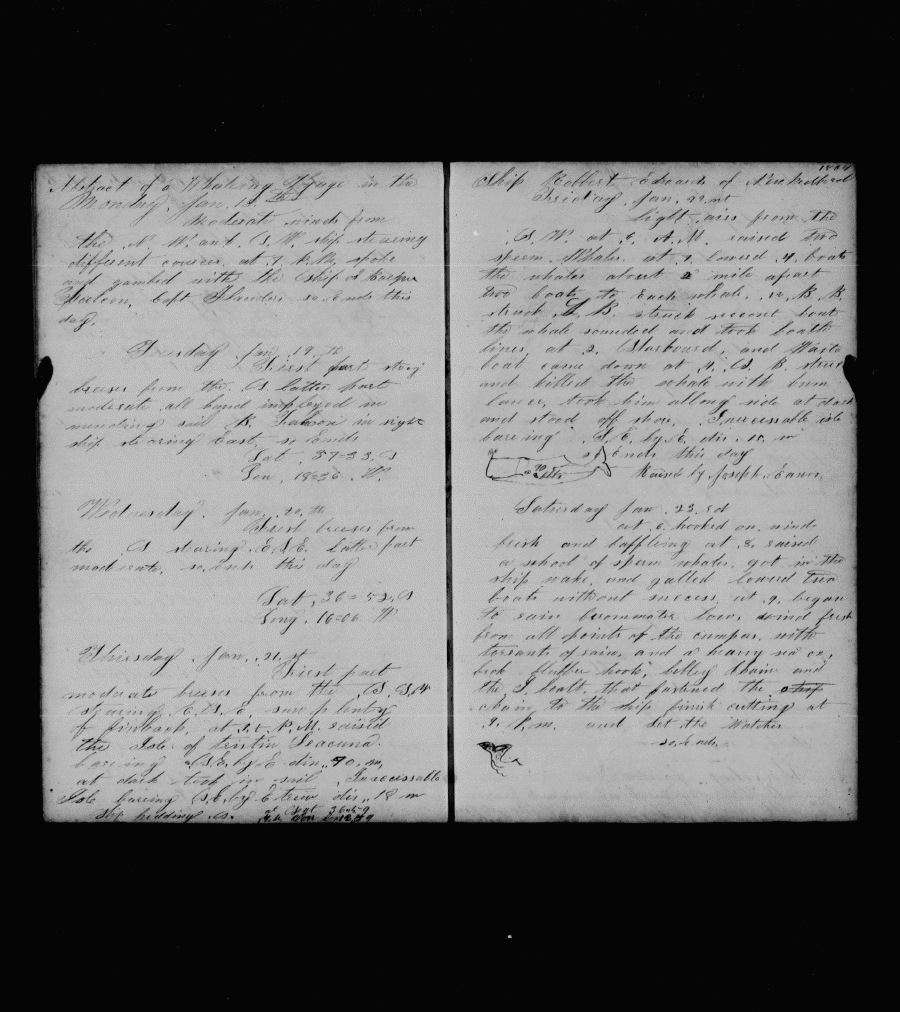 Abstract of a Whaleing Voyage in the
Monday, Jan, 18th
Moderate winds from
the N. W. and S. W. ship stearing
different courses, at 7, P. M. spoke
and gambed with the Ship
Capt so Ends this
day,
Tuesday Jan, 19, th
First part strong
breeses from the S latter part
moderate all hand imployed in
mending sail in sight
ship stearing East, so Ends
Lat, 37=33, S
Lon, 18=36, W.
Wednesday, Jan, 20, th
First breeses from
the S stearing E.S.E. latter part
moderate, so, Ends this day
Lat, 36=52, S
Long, 16=06 W
Thirsday, Jan, 21, st
First part
moderate breeses from the S, S, W
stearing E. S. E, saw plenty
of finback, at P. M. raised
the Isle of tristin Deacuna
bareing S. E, by E dis,, 90, m,
at dark took in sail, Inaccessable
Isle baring S, E, by E true dis,, 18 m
Ship heading S.
1864
Ship Robbert Edwards of New Bedford
Friday, Jan, 22, nt
light airs from the
S. W. at 6, A. M. raised two
sperm Whales, at 7, lowered 4, boats
the whales about 2 mile apart
two boats to Each whale, B. B.
struck L. B. struck second boat
the whale sounded and took boath
lines at 2, Starbourd, and Waste
boat came down at 4, S, B, struck
and killed the whale with bum
lance, took him allong side at dark
and stood off shore, Inaccessable isle
bareing S, E, by E, dis, m
so Ends this day
90
bbls
Raised by Joseph
Saturday Jan, 23, rd
at 6 hooked on, winds
fresh and baffleing at 8, raised
a school of sperm whales, got in the
ship wake, and gallied lowered two
boats without success, at 9, began
to rain barometer low, wind fresh
from all points of the cumpas, with
torrants of rain, and a heavy sea on,
brok blubber hook, belley chain and
the I, boalt, that fastened the ship
chain, to the ship finish cutting at
9, P, m, and set the Watches
so, Ends,